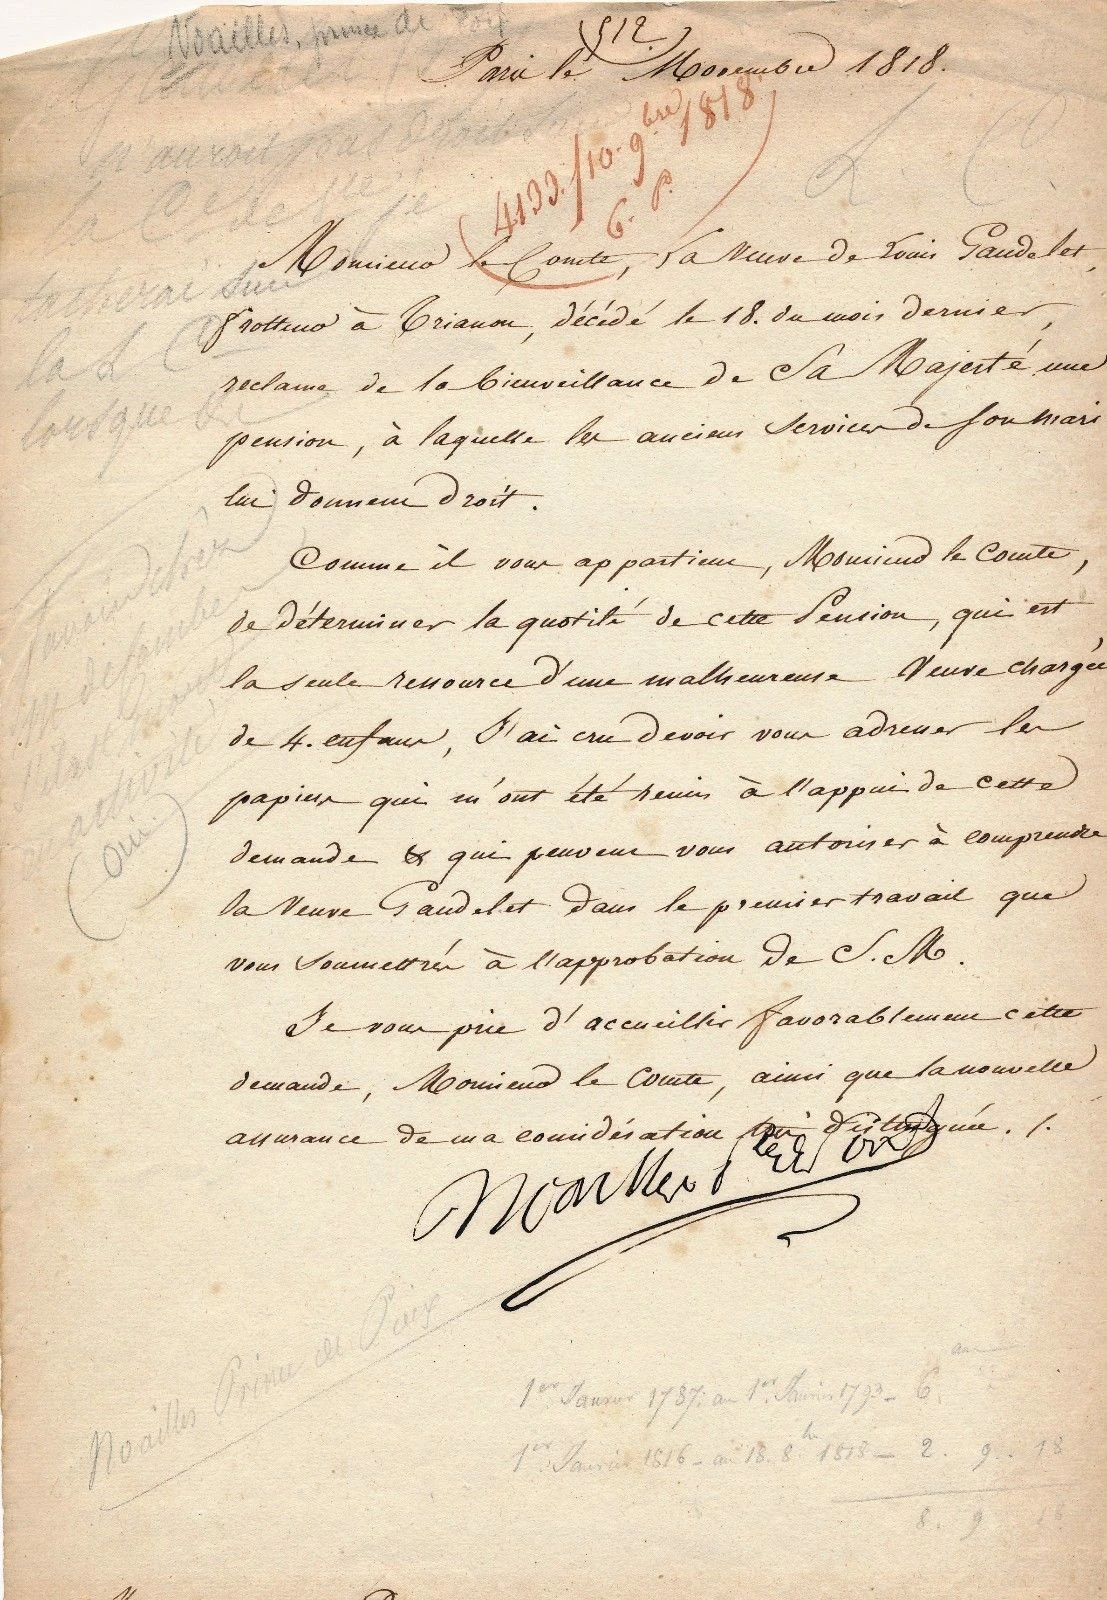 Noailles, prince de Poix
512.
Paris le Novembre 1818.
4133./10. 9.bre 1818
6. P.
n'auroit pas droit
la
Monsieur le Comte, La Veuve de Louis Gaudelet,
toucherai sur
frotteur à Trianon, décédé le 18. du mois dernier,
la L C
réclame de la bienveillance de Sa Majesté une
lorsque
pension, à laquelle les anciens services de son mari
lui donnent droit.
Comme il vous appartient, Monsieur le Comte,
de déterminer la quotité de cette Pension, qui est
la seule ressource d'une malheureuse Veuve chargée
de 4. enfans, J'ai cru devoir vous adresser les
papiers qui m'ont été remis à l'appui de cette
activité
demande & qui peuvent vous autoriser à comprendre
(oui)
la Veuve Gaudelet dans le premier travail que
vous soumettrés à l'approbation de S. M.
Je vous prie d'accueillir favorablement cette
demande, Monsieur le Comte, ainsi que la nouvelle
assurance de ma considération très distinguée. /.
Noailles Pce de Poix
Noailles Prince de Poix
1er Janvier 1787. au 1er Janvier 1793 - 6. ans
1er Janvier 1816 - au 18. 8bre 1818 - 2. 9. 18
8. 9 18